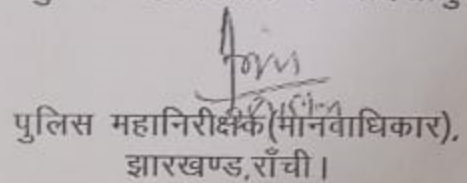 पुलिस महानिरीक्षक(मानवाधिकार),
झारखण्ड,राँची।